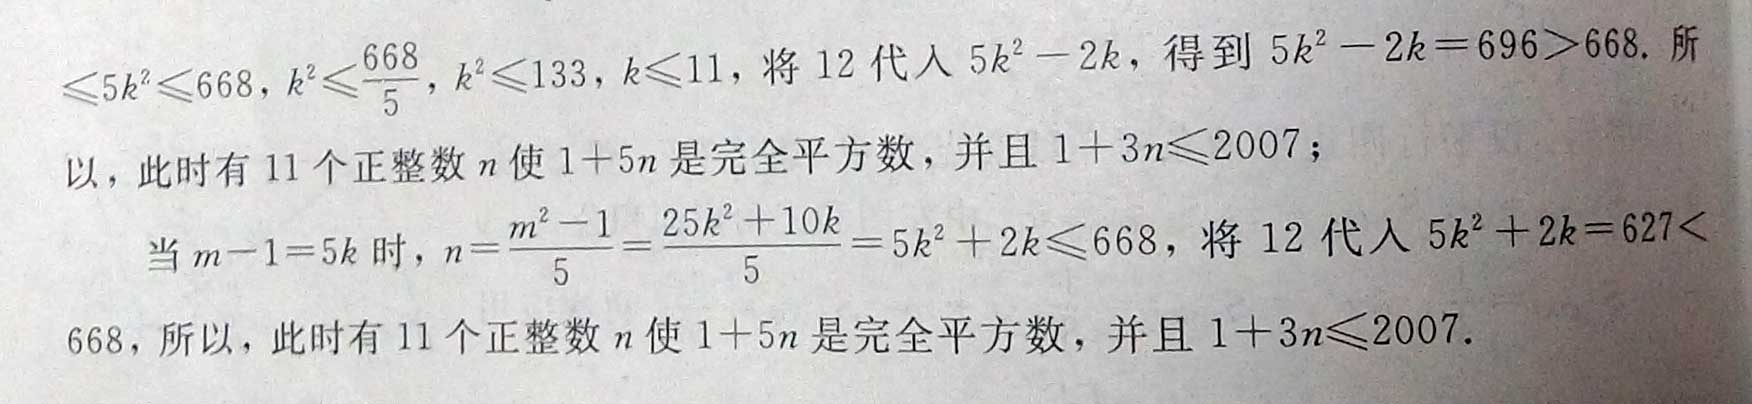 ≤5k²≤668，k²≤668/5，k²≤133，k≤11，将 12 代入 5k²－2k，得到 5k²－2k＝696＞668. 所
以，此时有 11 个正整数 n 使 1＋5n 是完全平方数，并且 1＋3n≤2007；
当 m－1＝5k 时，n＝(m²－1)/5＝(25k²＋10k)/5＝5k²＋2k≤668，将 12 代入 5k²＋2k＝627＜
668，所以，此时有 11 个正整数 n 使 1＋5n 是完全平方数，并且 1＋3n≤2007.